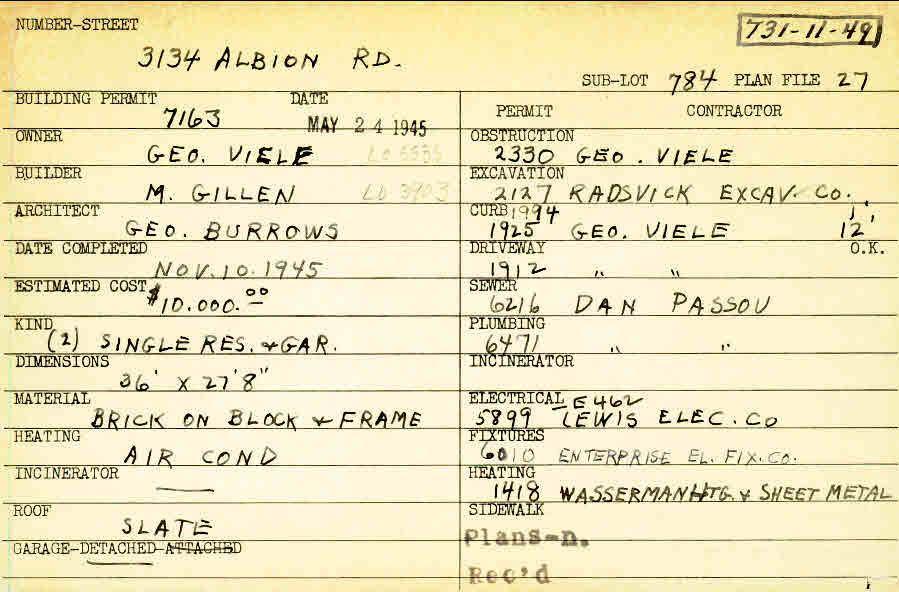 NUMBER-STREET
731-11-49
3134 ALBION RD.
SUB-LOT 784 PLAN FILE 27
BUILDING PERMIT DATE
7163 MAY 24 1945
OWNER
GEO. VIELE
BUILDER
M. GILLEN LD 3903
ARCHITECT
GEO. BURROWS
DATE COMPLETED
NOV. 10. 1945
ESTIMATED COST
$10.000.00
KIND
(2) SINGLE RES. & GAR.
DIMENSIONS
36' X 27'8"
MATERIAL
BRICK ON BLOCK & FRAME
HEATING
AIR COND
INCINERATOR
—
ROOF
SLATE
GARAGE-DETACHED-ATTACHED
PERMIT CONTRACTOR
OBSTRUCTION
2330 GEO. VIELE
EXCAVATION
2127 RADSVICK EXCAV. CO.
CURB 1994
1925 GEO. VIELE 12'
DRIVEWAY O.K.
1912 " "
SEWER
6216 DAN PASSOV
PLUMBING
6471 " "
INCINERATOR
ELECTRICAL E462
5899 LEWIS ELEC. CO
FIXTURES
6010 ENTERPRISE EL. FIX. CO.
HEATING
1418 WASSERMAN HTG. & SHEET METAL
SIDEWALK
Plans-n.
Rec'd